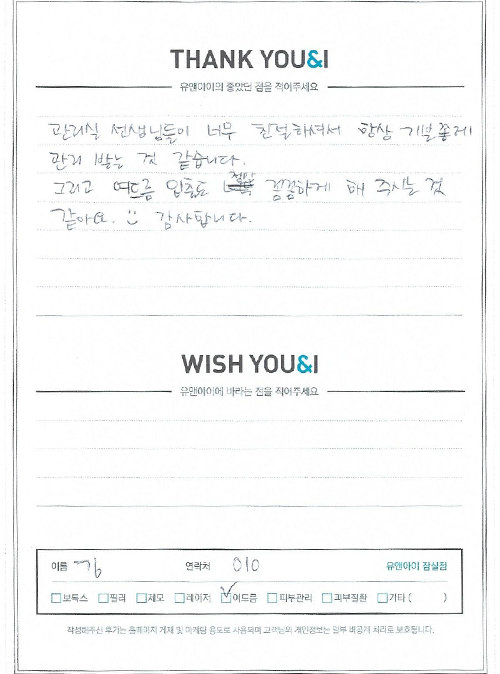 THANK YOU&I
유앤아이의 좋았던 점을 적어주세요
관리실 선생님들이 너무 친절하셔서 항상 기분좋게
관리 받는 것 같습니다.
그리고 여드름 압출도 정말 꼼꼼하게 해 주시는 것
같아요. 감사합니다.
WISH YOU&I
유앤아이에 바라는 점을 적어주세요
이름 연락처 010 유앤아이 잠실점
보톡스 필러 제모 레이저 여드름 피부관리 피부질환 기타 ( )
작성해주신 후기는 홈페이지 게재 및 마케팅 용도로 사용되며 고객님의 개인정보는 일부 비공개 처리로 보호됩니다.